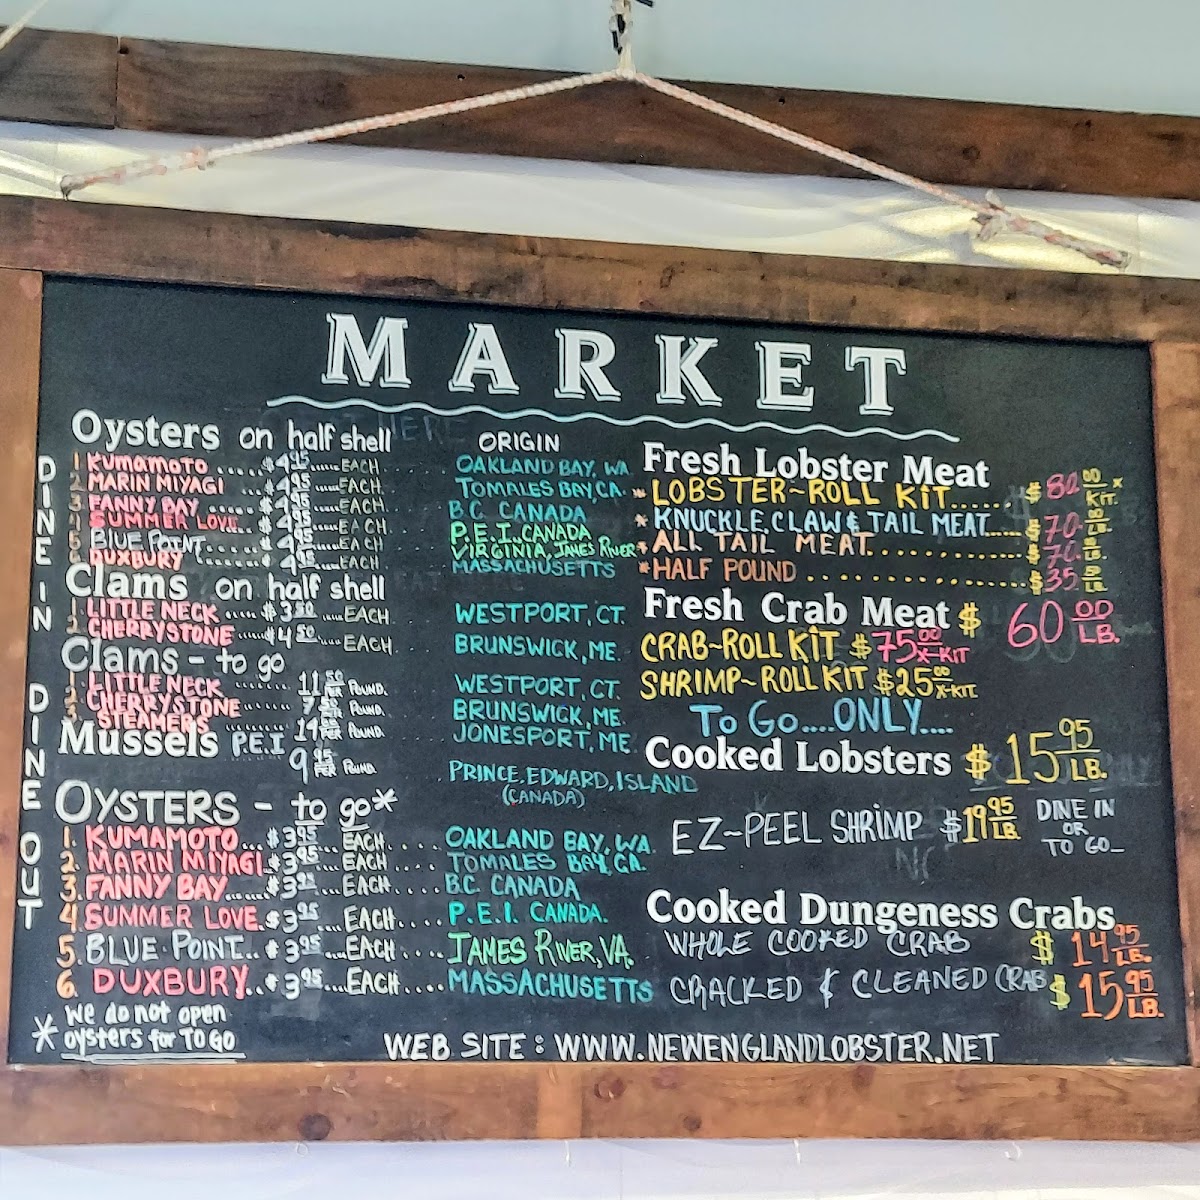 MARKET
Oysters on half shell ORIGIN
1 KUMAMOTO ..... $4.95 ...... EACH .... OAKLAND BAY, WA
2 MARIN MIYAGI ... $4.95 ..... EACH .... TOMALES BAY, CA.
3 FANNY BAY ..... $4.95 ..... EACH .... B.C. CANADA
4 SUMMER LOVE.. $4.95 ..... EACH P.E.I. CANADA
5 BLUE POINT...... $4.95 ..... EACH VIRGINIA, JAMES RIVER
6 DUXBURY ...... $4.95 ..... EACH MASSACHUSETTS
Clams on half shell
1 LITTLE NECK ...... $3.50 ..... EACH WESTPORT, CT.
2 CHERRYSTONE ..... $4.50 ..... EACH BRUNSWICK, ME.
Clams - to go
1 LITTLE NECK ....... 11.50 PER POUND. WESTPORT, CT.
2 CHERRYSTONE ...... 7.50 PER POUND. BRUNSWICK, ME.
3 STEAMERS ....... 14.00 PER POUND. JONESPORT, ME
Mussels P.E.I
9.95 PER POUND. PRINCE.EDWARD.ISLAND
(CANADA)
OYSTERS - to go*
1. KUMAMOTO... $3.95 ... EACH.... OAKLAND BAY, WA.
2. MARIN MIYAGI. $3.95 .... EACH.... TOMALES BAY, CA.
3. FANNY BAY ...... $3.95 .... EACH.... B.C. CANADA
4 SUMMER LOVE. $3.95 .... EACH.... P.E.I. CANADA.
5. BLUE POINT.. $3.95 .... EACH.... JAMES RIVER, VA.
6. DUXBURY.. $3.95 .... EACH.... MASSACHUSETTS
* We do not open
oysters for TO GO
DINE IN
DINE OUT
Fresh Lobster Meat
*LOBSTER~ROLL KIT...... $80.00 KIT. *
*KNUCKLE, CLAW & TAIL MEAT..... $70.00 LB.
*ALL TAIL MEAT............ $70.00 LB.
*HALF POUND .............. $35.50 LB
Fresh Crab Meat $60.00 LB.
CRAB~ROLL KIT $75.00 X-KIT
SHRIMP~ROLL KIT $25.00 X-KIT.
TO GO....ONLY....
Cooked Lobsters $15.95 LB.
EZ~PEEL SHRIMP $19.95 LB DINE IN
OR
TO GO_
Cooked Dungeness Crabs
WHOLE COOKED CRAB $14.95 LB.
CRACKED & CLEANED CRAB $15.95 LB.
WEB SITE : WWW.NEWENGLANDLOBSTER.NET